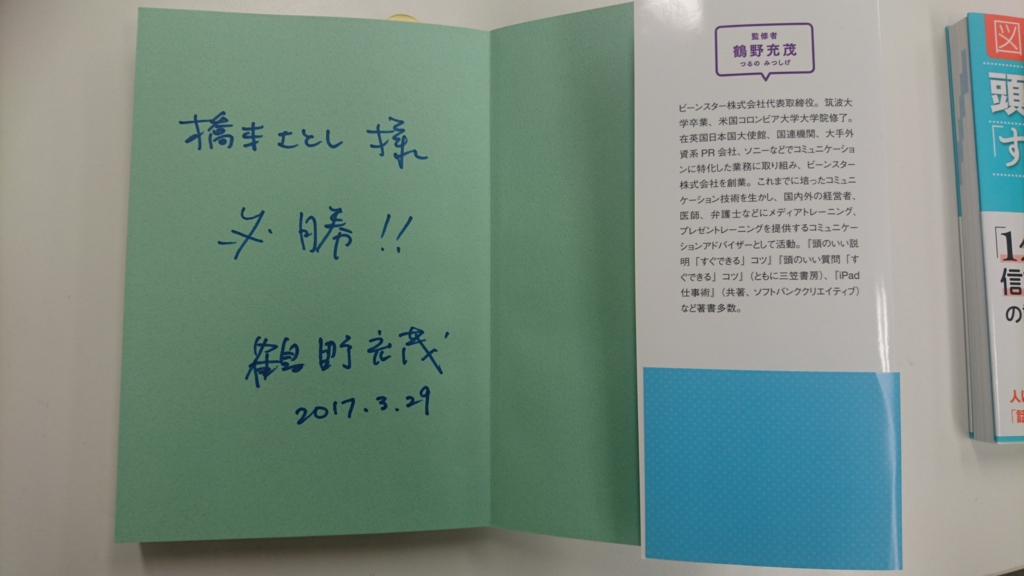 橋本さとし 様
必勝!!
鶴野充茂
2017.3.29
監修者
鶴野充茂
つるの みつしげ
ビーンスター株式会社代表取締役。筑波大
学卒業、米国コロンビア大学大学院修了。
在英国日本国大使館、国連機関、大手外
資系PR会社、ソニーなどでコミュニケーション
に特化した業務に取り組み、ビーンスター
株式会社を創業。これまでに培ったコミュニ
ケーション技術を生かし、国内外の経営者、
医師、弁護士などにメディアトレーニング、
プレゼントレーニングを提供するコミュニケー
ションアドバイザーとして活動。『頭のいい説
明「すぐできる」コツ』『頭のいい質問「す
ぐできる」コツ』(ともに三笠書房)、『iPad
仕事術』(共著、ソフトバンククリエイティブ)
など著書多数。
図
頭
「す
信
の
人
「話